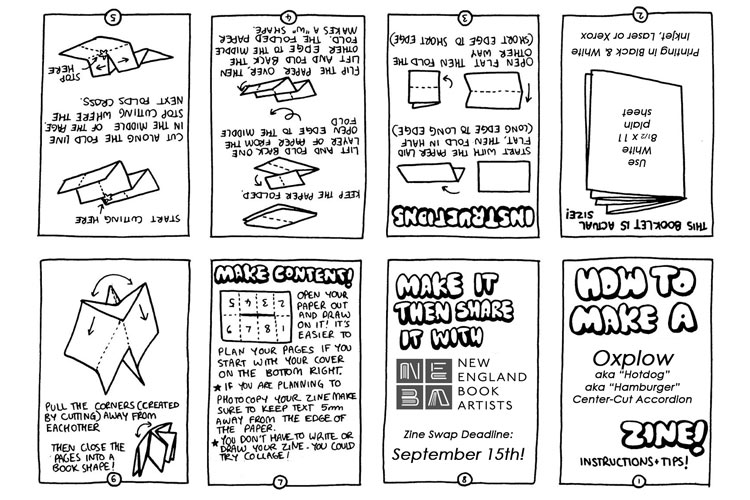 HOW TO
MAKE A
Oxplow
aka "Hotdog"
aka "Hamburger"
Center-Cut Accordion
ZINE!
INSTRUCTIONS + TIPS!
1
THIS BOOKLET IS ACTUAL
SIZE!
Use
White
8 1/2 x 11
plain
sheet
Printing in Black & White
Inkjet, Laser or Xerox
2
INSTRUCTIONS
START WITH THE PAPER LAID
FLAT, THEN FOLD IN HALF
(LONG EDGE TO LONG EDGE)
OPEN FLAT, THEN FOLD THE
OTHER WAY
(SHORT EDGE TO SHORT EDGE)
3
KEEP THE PAPER FOLDED.
LIFT AND FOLD BACK ONE
LAYER OF PAPER FROM THE
OPEN EDGE TO THE MIDDLE
FOLD
FLIP THE PAPER OVER, THEN
LIFT AND FOLD BACK THE
OTHER EDGE TO THE MIDDLE
FOLD. THE FOLDED PAPER
MAKES A "W" SHAPE.
4
START CUTTING HERE
CUT ALONG THE FOLD LINE
IN THE MIDDLE OF THE PAGE.
STOP CUTTING WHERE THE
NEXT FOLDS CROSS.
STOP
HERE
5
PULL THE CORNERS (CREATED
BY CUTTING) AWAY FROM
EACHOTHER
THEN CLOSE THE
PAGES INTO A
BOOK SHAPE!
6
MAKE CONTENT!
5 4 3 2
6 7 8 1
OPEN YOUR
PAPER OUT
AND DRAW
ON IT! IT'S
EASIER TO
PLAN YOUR PAGES IF YOU
START WITH YOUR COVER
ON THE BOTTOM RIGHT.
★ IF YOU ARE PLANNING TO
PHOTOCOPY YOUR ZINE MAKE
SURE TO KEEP TEXT 5mm
AWAY FROM THE EDGE OF
THE PAPER.
★ YOU DON'T HAVE TO WRITE OR
DRAW YOUR ZINE. YOU COULD
TRY COLLAGE!
7
MAKE IT
THEN SHARE
IT WITH
NE
BA
NEW
ENGLAND
BOOK
ARTISTS
Zine Swap Deadline:
September 15th!
8